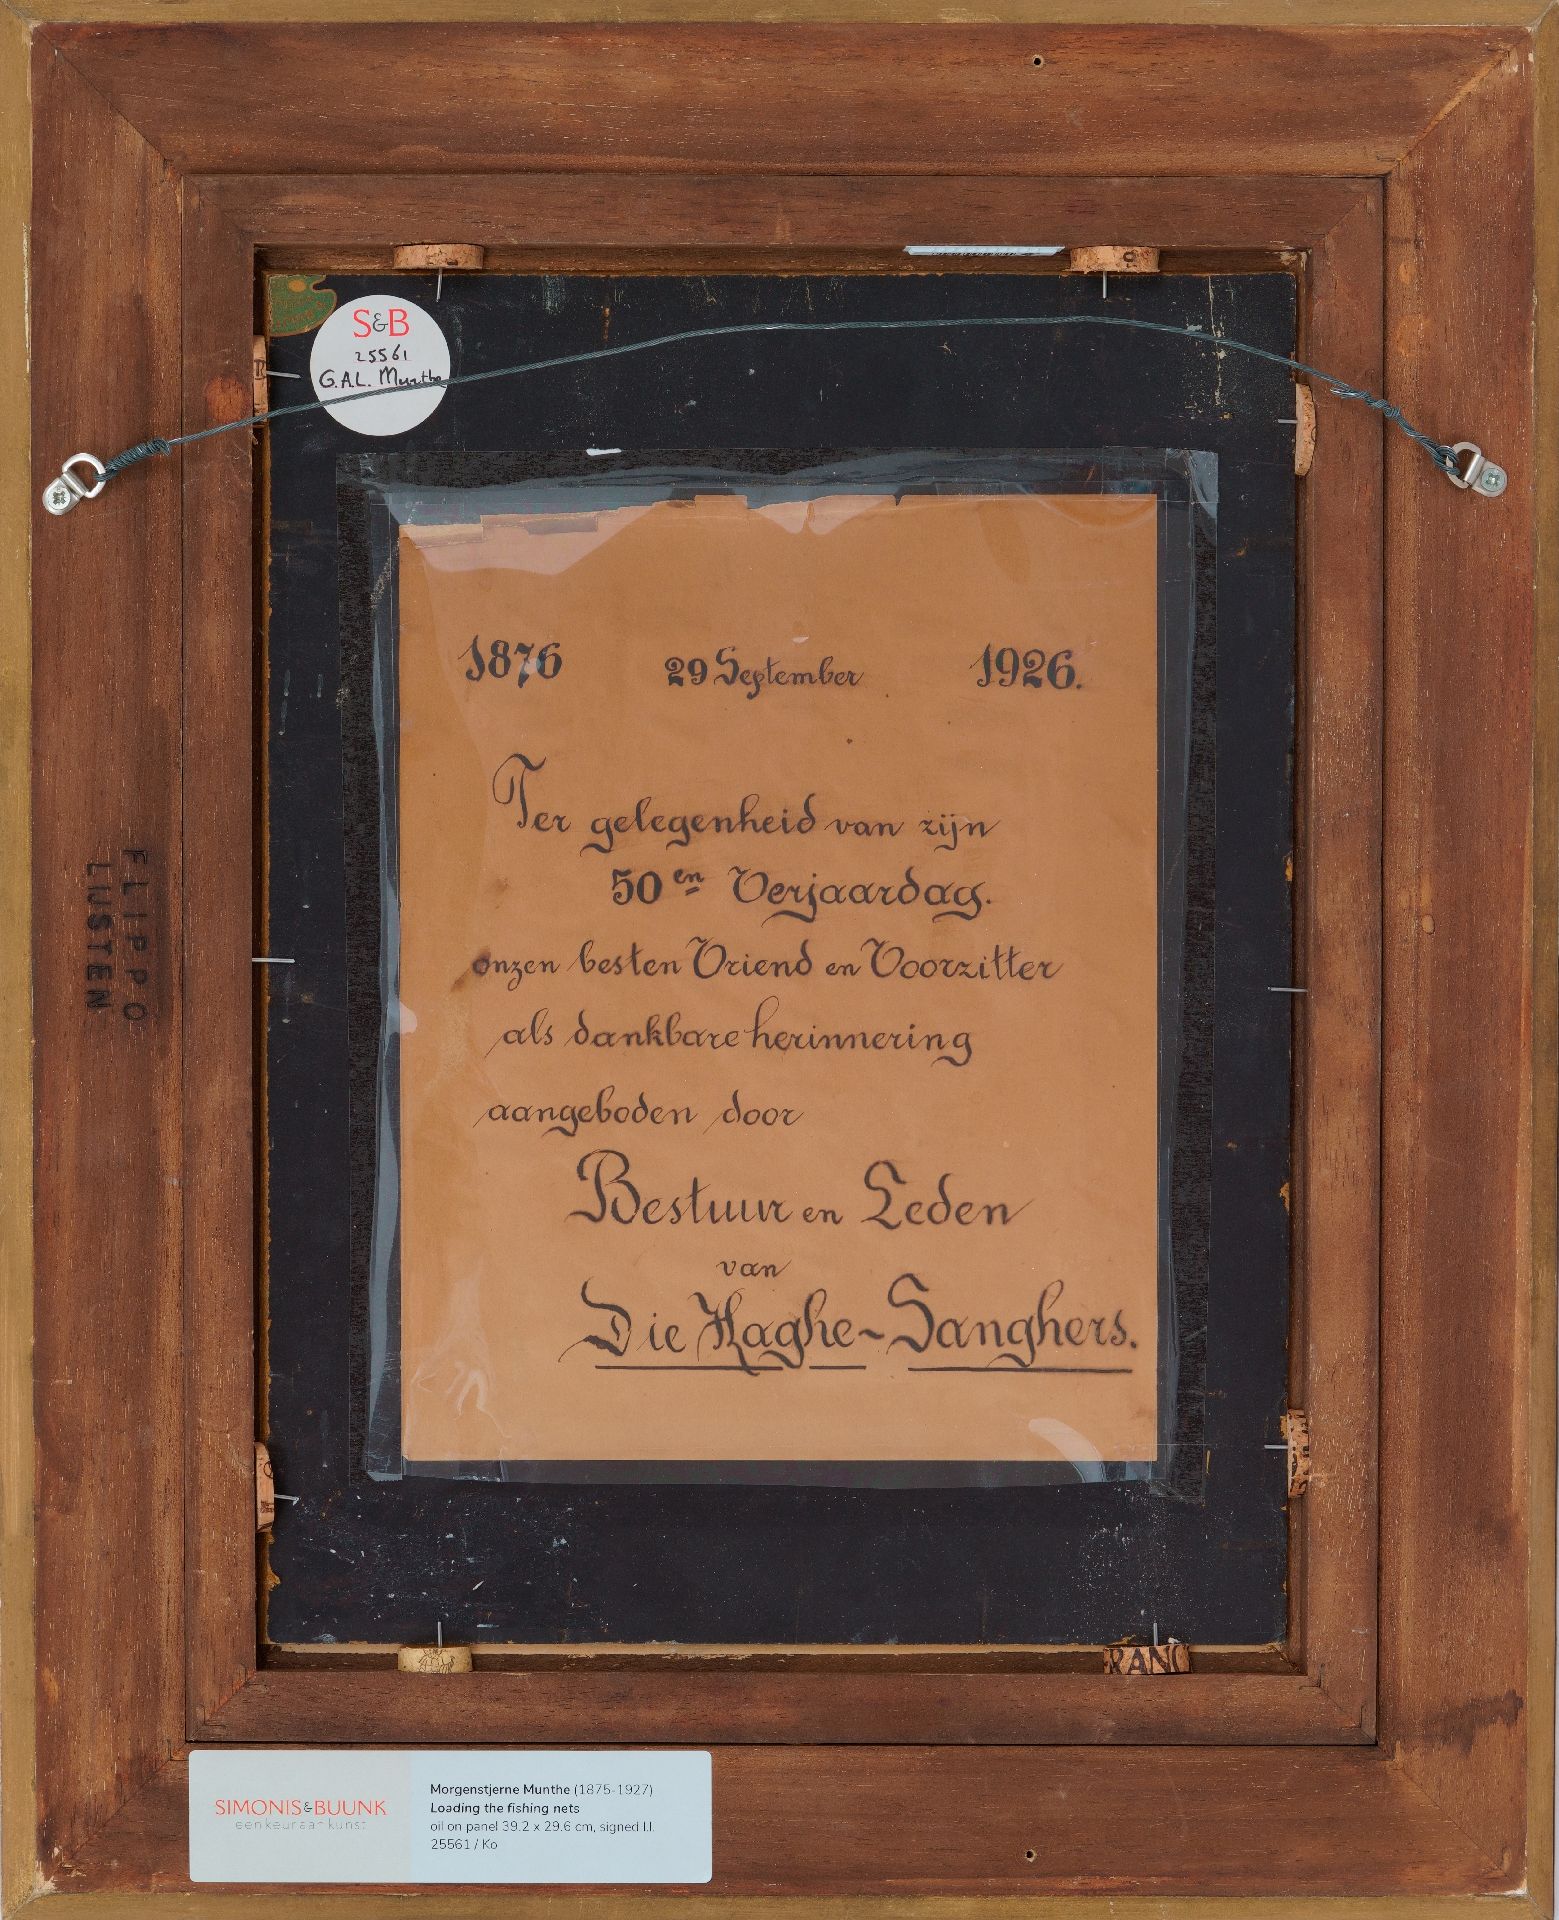 S&B
25561
G.A.L. Munthe
1876 29 September 1926.
Ter gelegenheid van zijn
50en Verjaardag.
onzen besten Vriend en Voorzitter
als dankbare herinnering
aangeboden door
Bestuur en Leden
van
Die Haghe-Sanghers.
FLIPPO
LIJSTEN
RANC
SIMONIS&BUUNK
een keur aan kunst
Morgenstjerne Munthe (1875-1927)
Loading the fishing nets
oil on panel 39.2 x 29.6 cm, signed l.l.
25561 / Ko